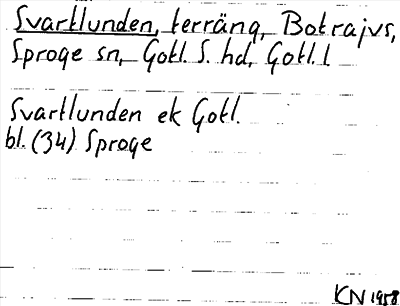 Svartlunden, terräng, Botrajvs,
Sproge sn, Gotl. S. hd, Gotl. l.
Svartlunden ek Gotl.
bl. (34) Sproge
KN 1958